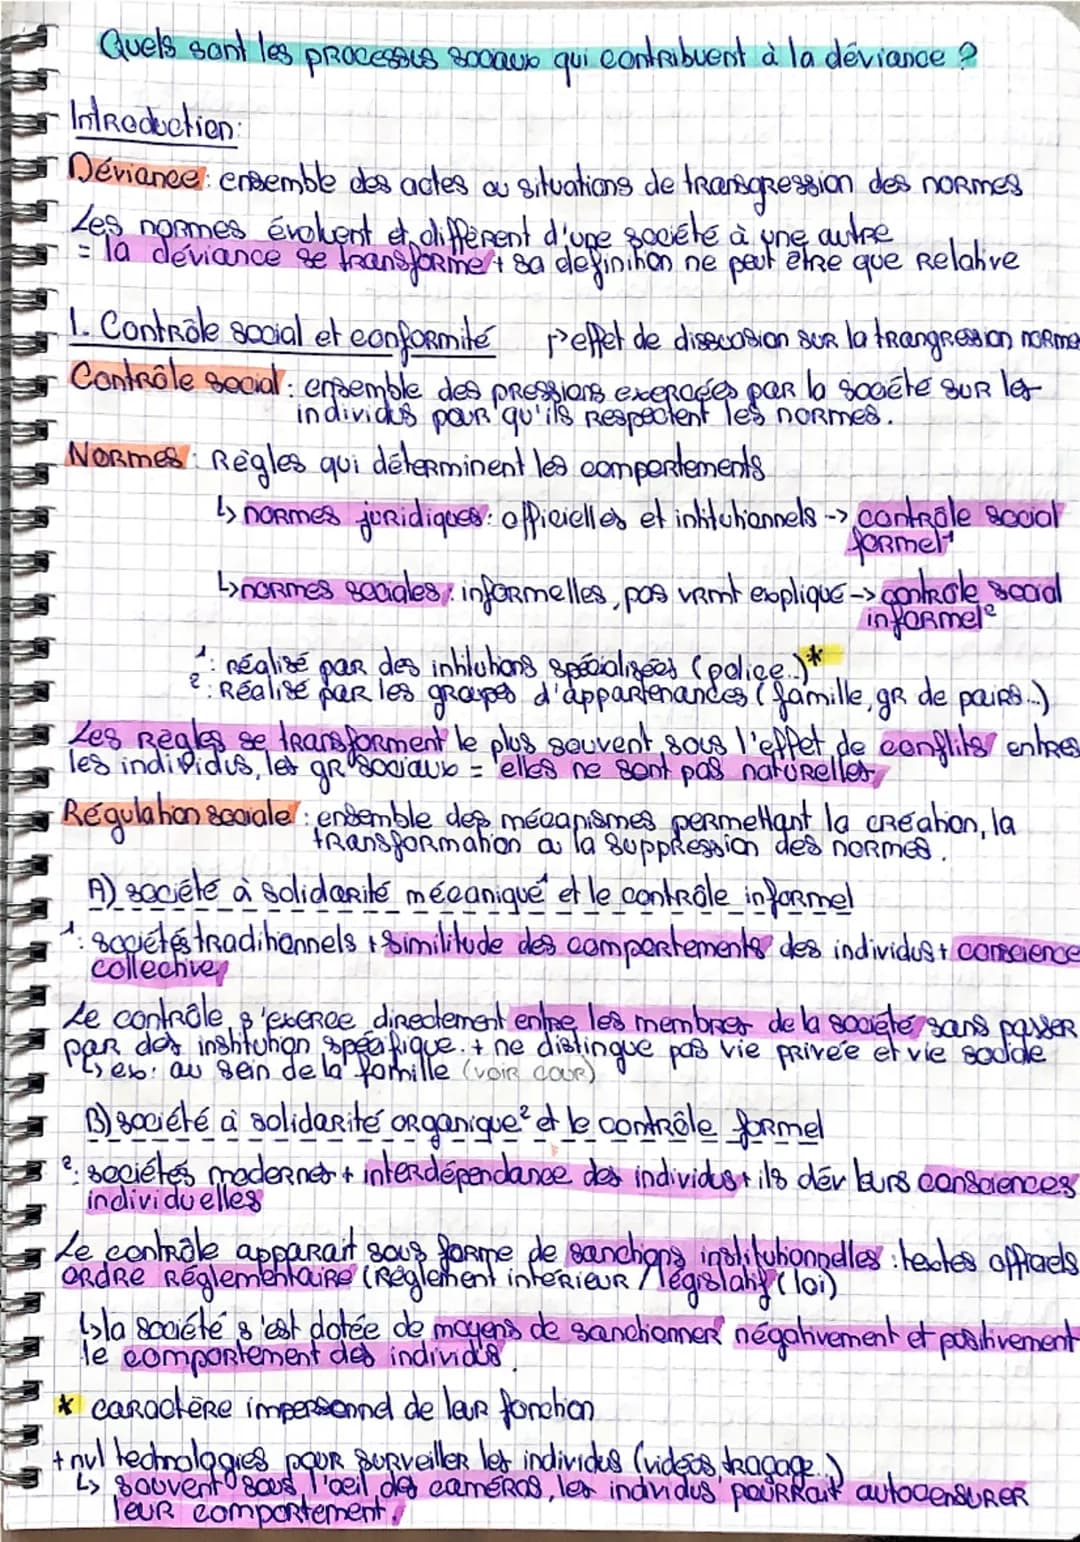 Quels sont les processus sociaux qui contribuent à la déviance ?
Introduction:
Déviance : ensemble des actes ou situations de transgression des normes
Les normes évoluent et diffèrent d'une société à une autre
= la déviance se transforme + sa définition ne peut être que relative
1. Contrôle social et conformité
↱ effet de dissuasion sur la trangression norme
Contrôle social : ensemble des pressions exercées par la société sur les
individus pour qu'ils respectent les normes.
Normes : Règles qui déterminent les comportements
↳ normes juridiques : officielles et intitutionnels -> contrôle social
formel¹
↳ normes sociales : informelles, pas vrmt expliqué -> controle social
informel²
1: réalisé par des intitutions spécialisées (police..)*
2: Réalisé par les groupes d'appartenances (famille, gr de pairs...)
Les Règles se transforment le plus souvent sous l'effet de conflits entres
les individus, les gr sociaux = elles ne sont pas naturelles
Régulation sociale : ensemble des mécanismes permettant la création, la
transformation ou la suppression des normes.
A) société à solidarité mécanique¹ et le contrôle informel
1: sociétés traditionnels + similitude des comportements des individus + conscience
collective
Le contrôle s'exerce directement entre les membres de la société sans passer
par des institution spécifique. + ne distingue pas vie privée et vie sociale
↳ ex: au sein de la famille (voir cour)
B) société à solidarité organique² et le contrôle formel
2: sociétés modernes + interdépendance des individus + ils dév leurs consciences
individuelles
Le contrôle apparait sous forme de sanctions institutionnelles : textes officiels
ordre réglementaire (Règlement intérieur / législatif (loi)
↳ la société s'est dotée de moyens de sanctionner négativement et positivement
le comportement des individus
* caractère impersonnel de leur fonction
+ nvl technologies pour surveiller les individus (vidéos, traçage..)
↳ souvent sous l'oeil des caméras, les individus pourrait autocensurer
leur comportement.